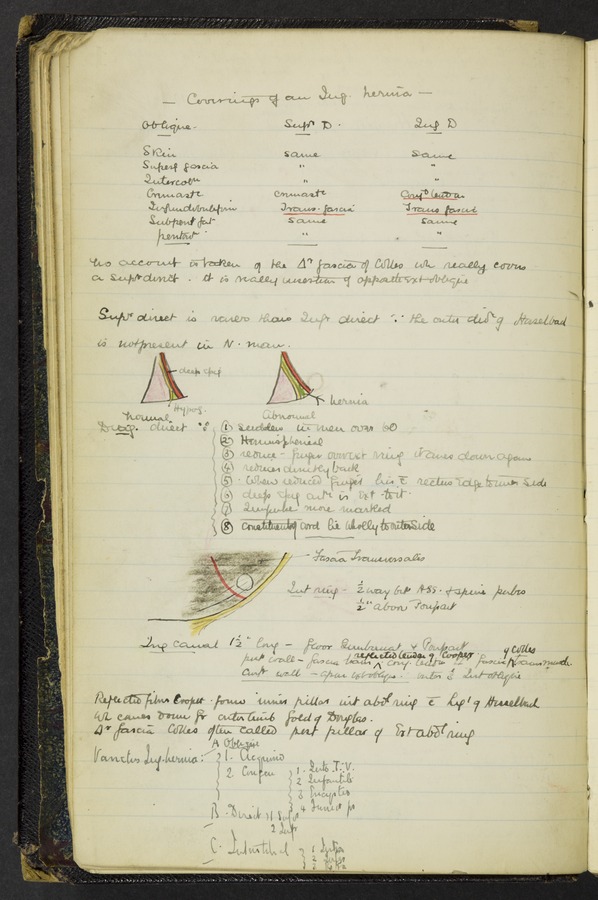 — Coverings of an Ing. hernia —
Oblique. Supr D. Inf D
Skin same same
Superf fascia " "
Intercoln "
Cremastc cremastc Conjd tendon
Infundibulifm Trans. fascia Trans fascia
Subperit fat same same
peritm " "
No account is taken of the Δr fascia of Colles wh really covers
a Supr direct. it is really insertion of opposite Ext oblique
Supr direct is rarer than Infr direct ∵ the outer divn of Hesselbach
is not present in N. man.
deep epig
Hypog.
hernia
Normal Abnormal
Diag. direct
① sudden in men over 50
② Hemispherical
③ reduce - finger over int ring it comes down again
④ reduces directly back
⑤ When reduced finger lies c̄ rectus edge to inner side
⑥ deep epig arty is
⑦ Impulse more marked
⑧ constituents of cord lie wholly to outer side
Fascia Transversalis
Int ring - ½ way bet ASS. & spine pubis
½" above Poupart
Ing canal 1½" long - floor Gimbernat & Poupart
reflected tendon of Cooper of Colles
post wall - fascia trans ^ conj tendon fascia
Ant wall - apon ext oblique. outer Int oblique
Reflected fibres Cooper - forms inner pillar int abdl ring c̄ ligt of Hesselbach
wh comes down fr outer limb fold of Douglas.
Δr fascia Colles often called post pillar of Ext abdl ring
Varieties Ing. hernia.
A Oblique
1. Acquired
2. Congen
1. Into T.V.
2 Infantile
3 Encysted
4 Funicr pr
B. Direct 1 Supr
2 Infr
C. Interstitial
1 Inter